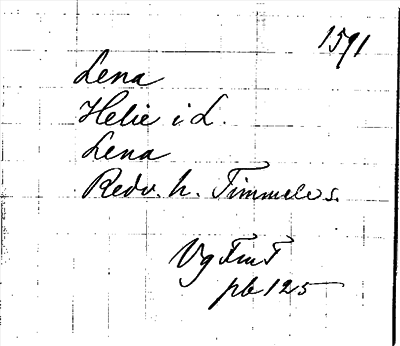 1591
Lena
Helie i L.
Lena
Redv. h. Timmele s.
Vg FmT
pb 125